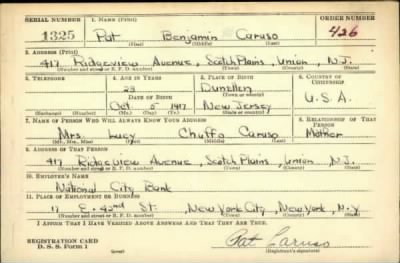 SERIAL NUMBER 1. NAME (Print) ORDER NUMBER
1325 Pat Benjamin Caruso 426
(First) (Middle) (Last)
2. ADDRESS (Print)
417 Ridgeview Avenue, Scotch Plains, Union, N.J.
(Number and street or R. F. D. number) (Town) (County) (State)
3. TELEPHONE 4. AGE IN YEARS 5. PLACE OF BIRTH 6. COUNTRY OF CITIZENSHIP
23 Dunellen
DATE OF BIRTH (Town or county)
Oct 5 1917 New Jersey U.S.A.
(Exchange) (No.) (Mo.) (Day) (Yr.) (State or country)
7. NAME OF PERSON WHO WILL ALWAYS KNOW YOUR ADDRESS 8. RELATIONSHIP OF THAT PERSON
Mrs. Lucy Chuffo Caruso Mother
(Mr., Mrs., Miss) (First) (Middle) (Last)
9. ADDRESS OF THAT PERSON
417 Ridgeview Avenue, Scotch Plains, Union, N.J.
(Number and street or R. F. D. number) (Town) (County) (State)
10. EMPLOYER'S NAME
National City Bank
11. PLACE OF EMPLOYMENT OR BUSINESS
17 E. 42nd St., New York City, New York, N.Y.
(Number and street or R. F. D. number) (Town) (County) (State)
I AFFIRM THAT I HAVE VERIFIED ABOVE ANSWERS AND THAT THEY ARE TRUE.
REGISTRATION CARD Pat Caruso
D. S. S. Form 1 (over) (Registrant's signature)